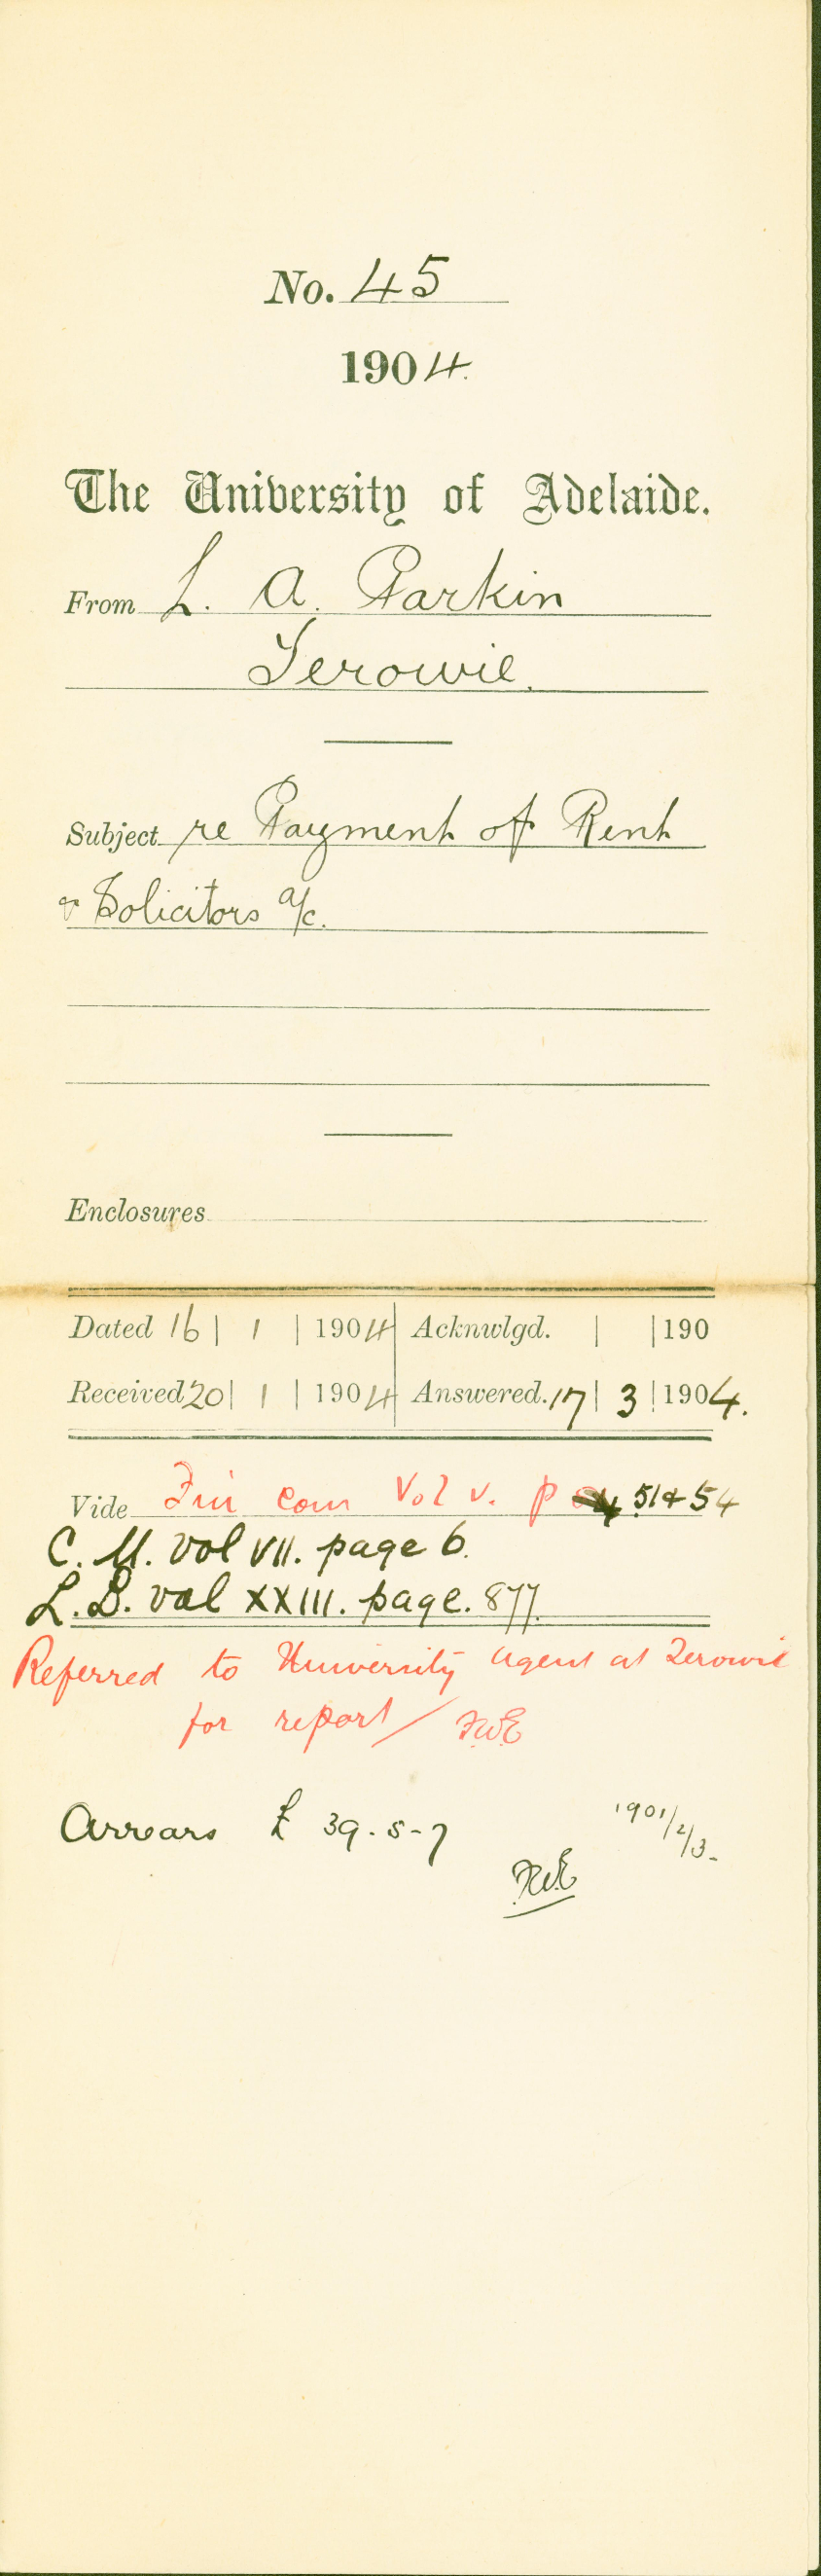 No. 45
1904.
The University of Adelaide.
From L. A. Parkin
Terowie.
Subject re Payment of Rent
& Solicitors a/c.
Enclosures
Dated 16 | 1 | 1904 Acknwlgd. | | 190
Received 20 | 1 | 1904 Answered. 17 | 3 | 1904.
Vide Fin Com Vol V. p 51 & 54
C. M. vol VII. page 6.
L.B. vol XXIII. page. 877.
Referred to University Agent at Terowie
for report / FWE
Arrears £ 39-5-7 1901/2/3-
FWE